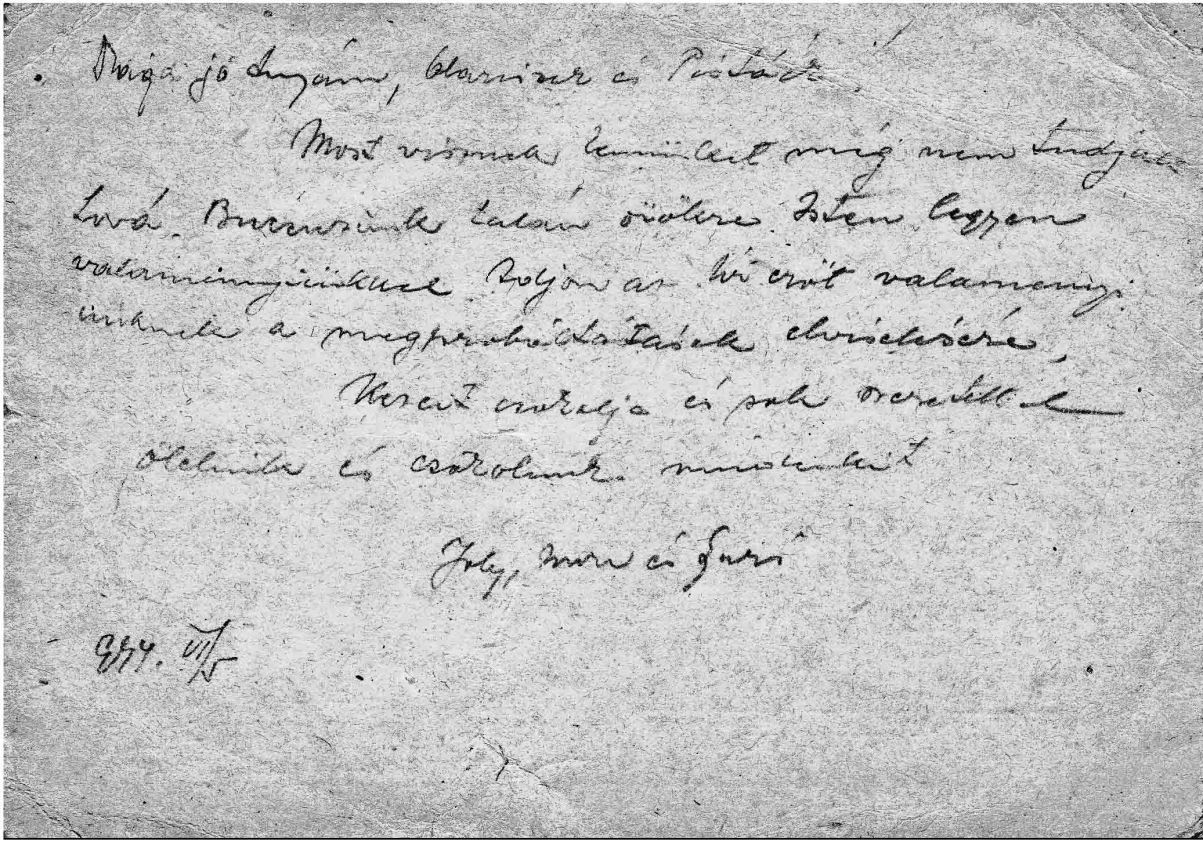 Drága jó Anyám, és Pistáék!
Most visznek bennünket még nem tudjuk
hová. Búcsúzunk talán örökre. Isten legyen
valamennyiünkkel. Adjon az Úr erőt valamennyi-
ünknek a megpróbáltatások elviselésére,
Kezeit csókolja és sok szeretettel
ölelünk és csókolunk mindenkit
Joly, Imre és Gyuri
944. VI/5